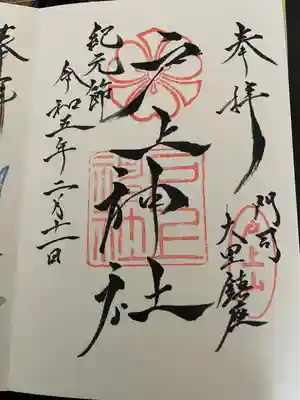 奉拝
門司
大里鎮座
戸上山
戸上神社
戸上神社
紀元節
令和五年二月十一日
奉